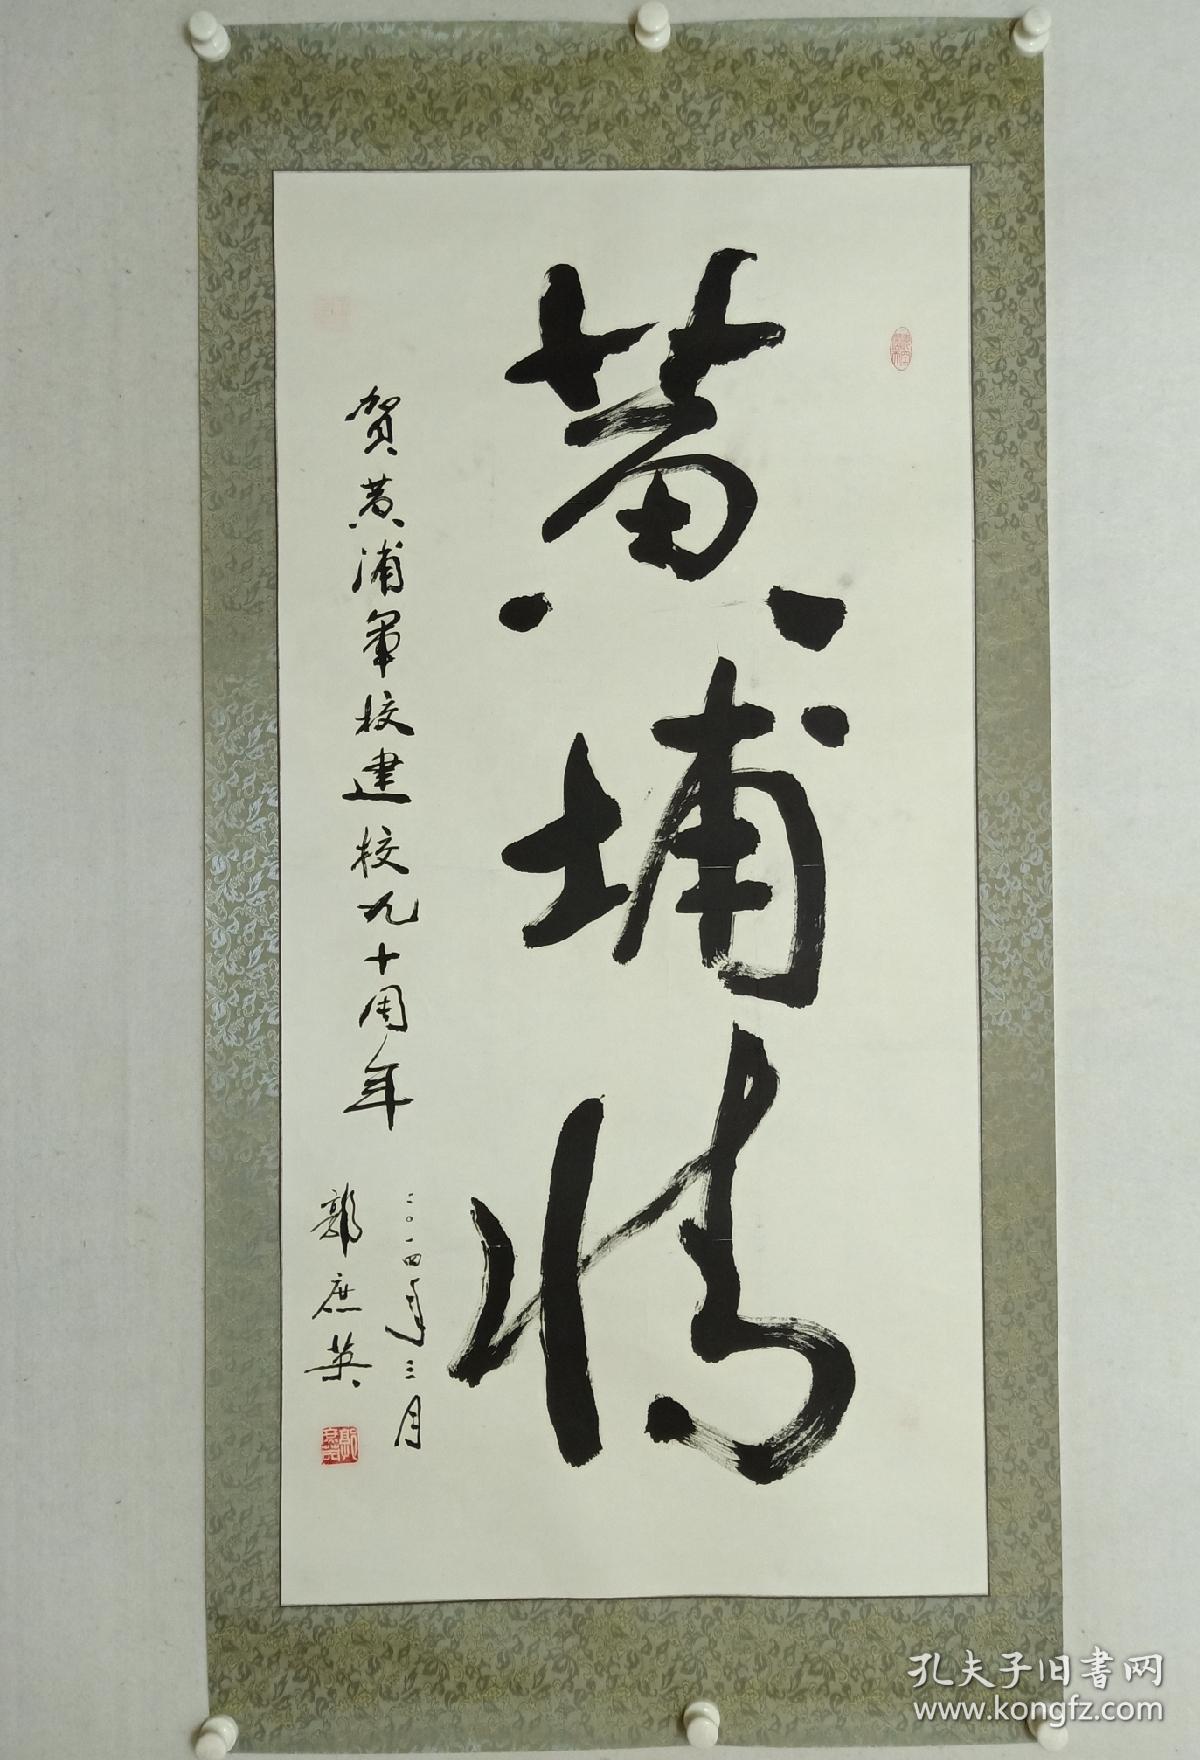 黄埔情
贺黄浦軍校建校九十周年
二〇一四年三月
郭庶英
孔夫子旧書网
www.kongfz.com